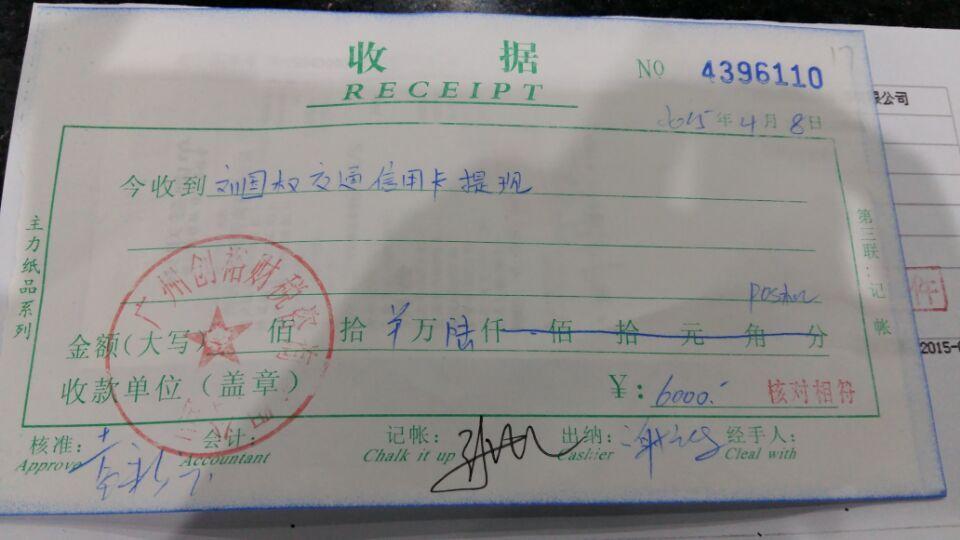 17
收据
RECEIPT
NO 4396110
限公司
2015年4月8日
今收到刘国权交通信用卡提现
主力纸品系列
第三联:记帐
广州创裕财税
件
POS
金额(大写) 佰 拾 ¥万陆仟 佰 拾 元 角 分
2015-0
收款单位(盖章)
¥: 6000.
核对相符
核准: 会计: 记帐: 出纳: 经手人:
Approve Accountant Chalk it up Cashier Cleal with